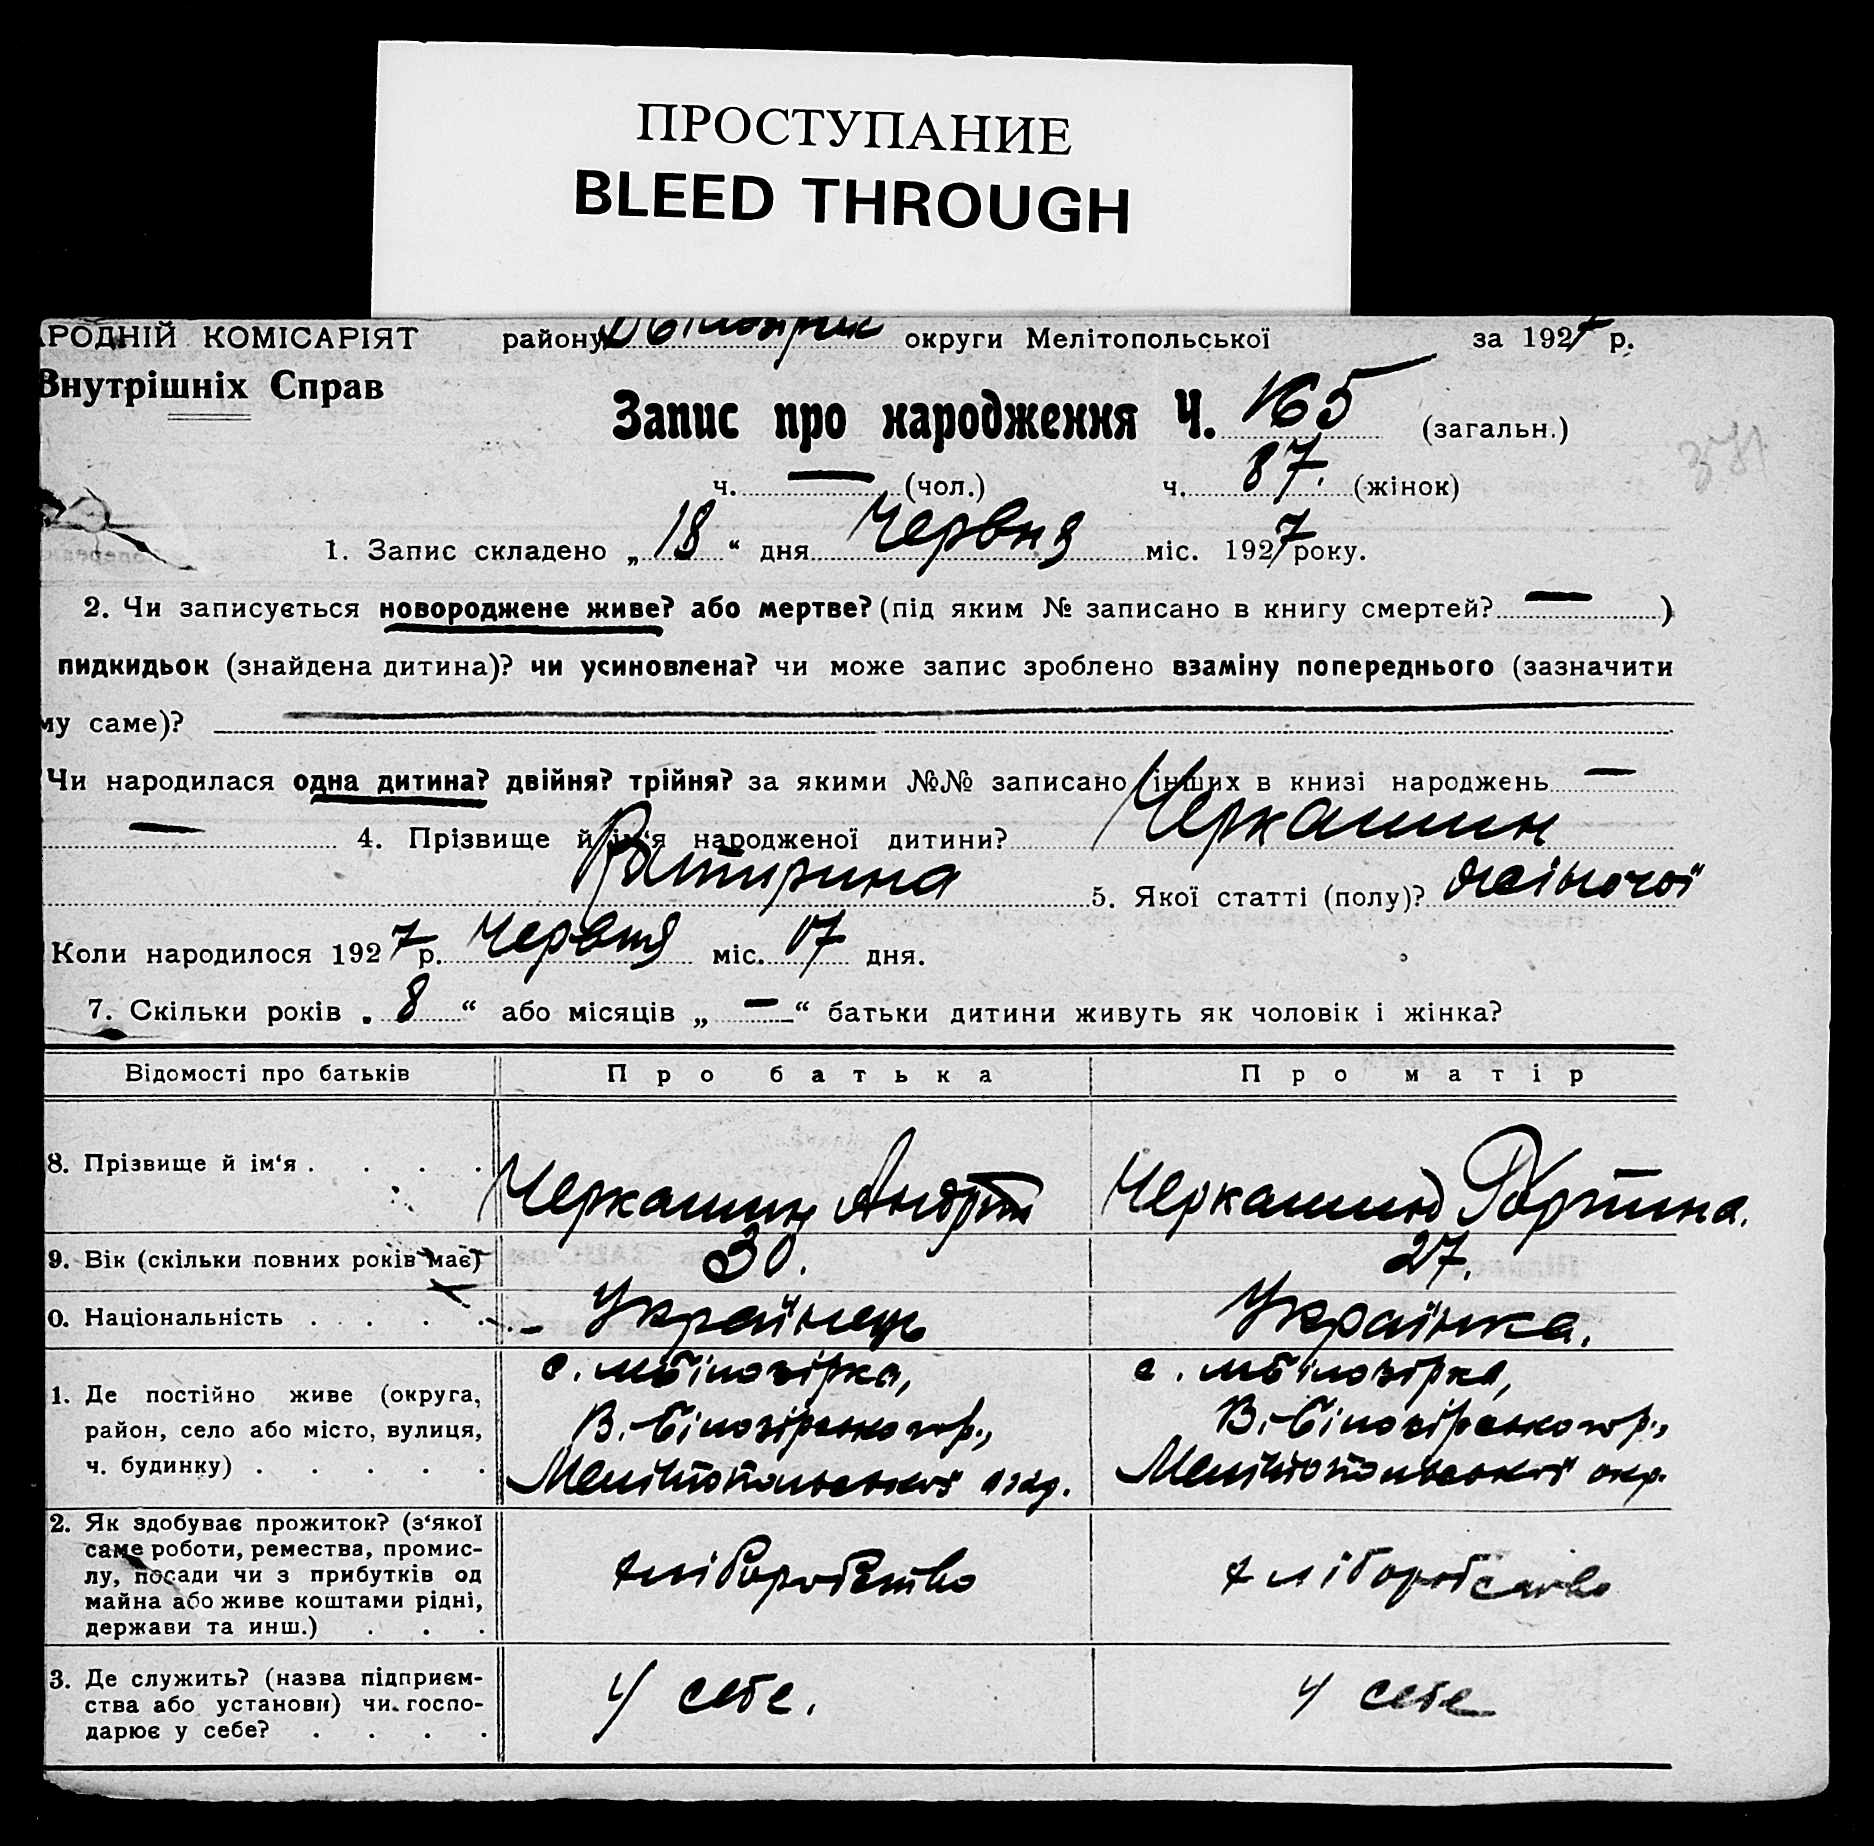 ПРОСТУПАНИЕ
BLEED THROUGH
РОДНІЙ КОМІСАРІЯТ району округи Мелітопольської за 1927 р.
Внутрішніх Справ
Запис про народження Ч. 165 (загальн.)
371
ч. — (чол.) ч. 87. (жінок)
1. Запис складено „18“ дня Червня міс. 1927 року.
2. Чи записується новороджене живе? або мертве? (під яким № записано в книгу смертей? — )
пидкидьок (знайдена дитина)? чи усиновлена? чи може запис зроблено взаміну попереднього (зазначити
му саме)?
Чи народилася одна дитина? двійня? трійня? за якими №№ записано інших в книзі народжень —
— 4. Прізвище й ім'я народженої дитини? Черкашин
5. Якої статті (полу)? жіночої
Коли народилося 1927 р. Червня міс. 17 дня.
7. Скільки років „8“ або місяців „—“ батьки дитини живуть як чоловік і жінка?
Відомості про батьків Про батька Про матір
8. Прізвище й ім'я . . . . Черкашин Андрій Черкашина
9. Вік (скільки повних років має) 30. 27.
0. Національність . . . . Українець Українка.
1. Де постійно живе (округа, район, село або місто, вулиця, ч. будинку) . . . . .
с. мБілозірка,
В.-Білозірського р.,
Мелітопольської окр.
с. мБілозірка,
В.-Білозірського р.,
Мелітопольської окр.
2. Як здобуває прожиток? (з'якої
саме роботи, ремества, промис-
лу, посади чи з прибутків од
майна або живе коштами рідні,
держави та инш.) . . .
хліборобство хліборобство
3. Де служить? (назва підприєм-
ства або установи) чи госпо-
дарює у себе? . . . .
у себе. у себе